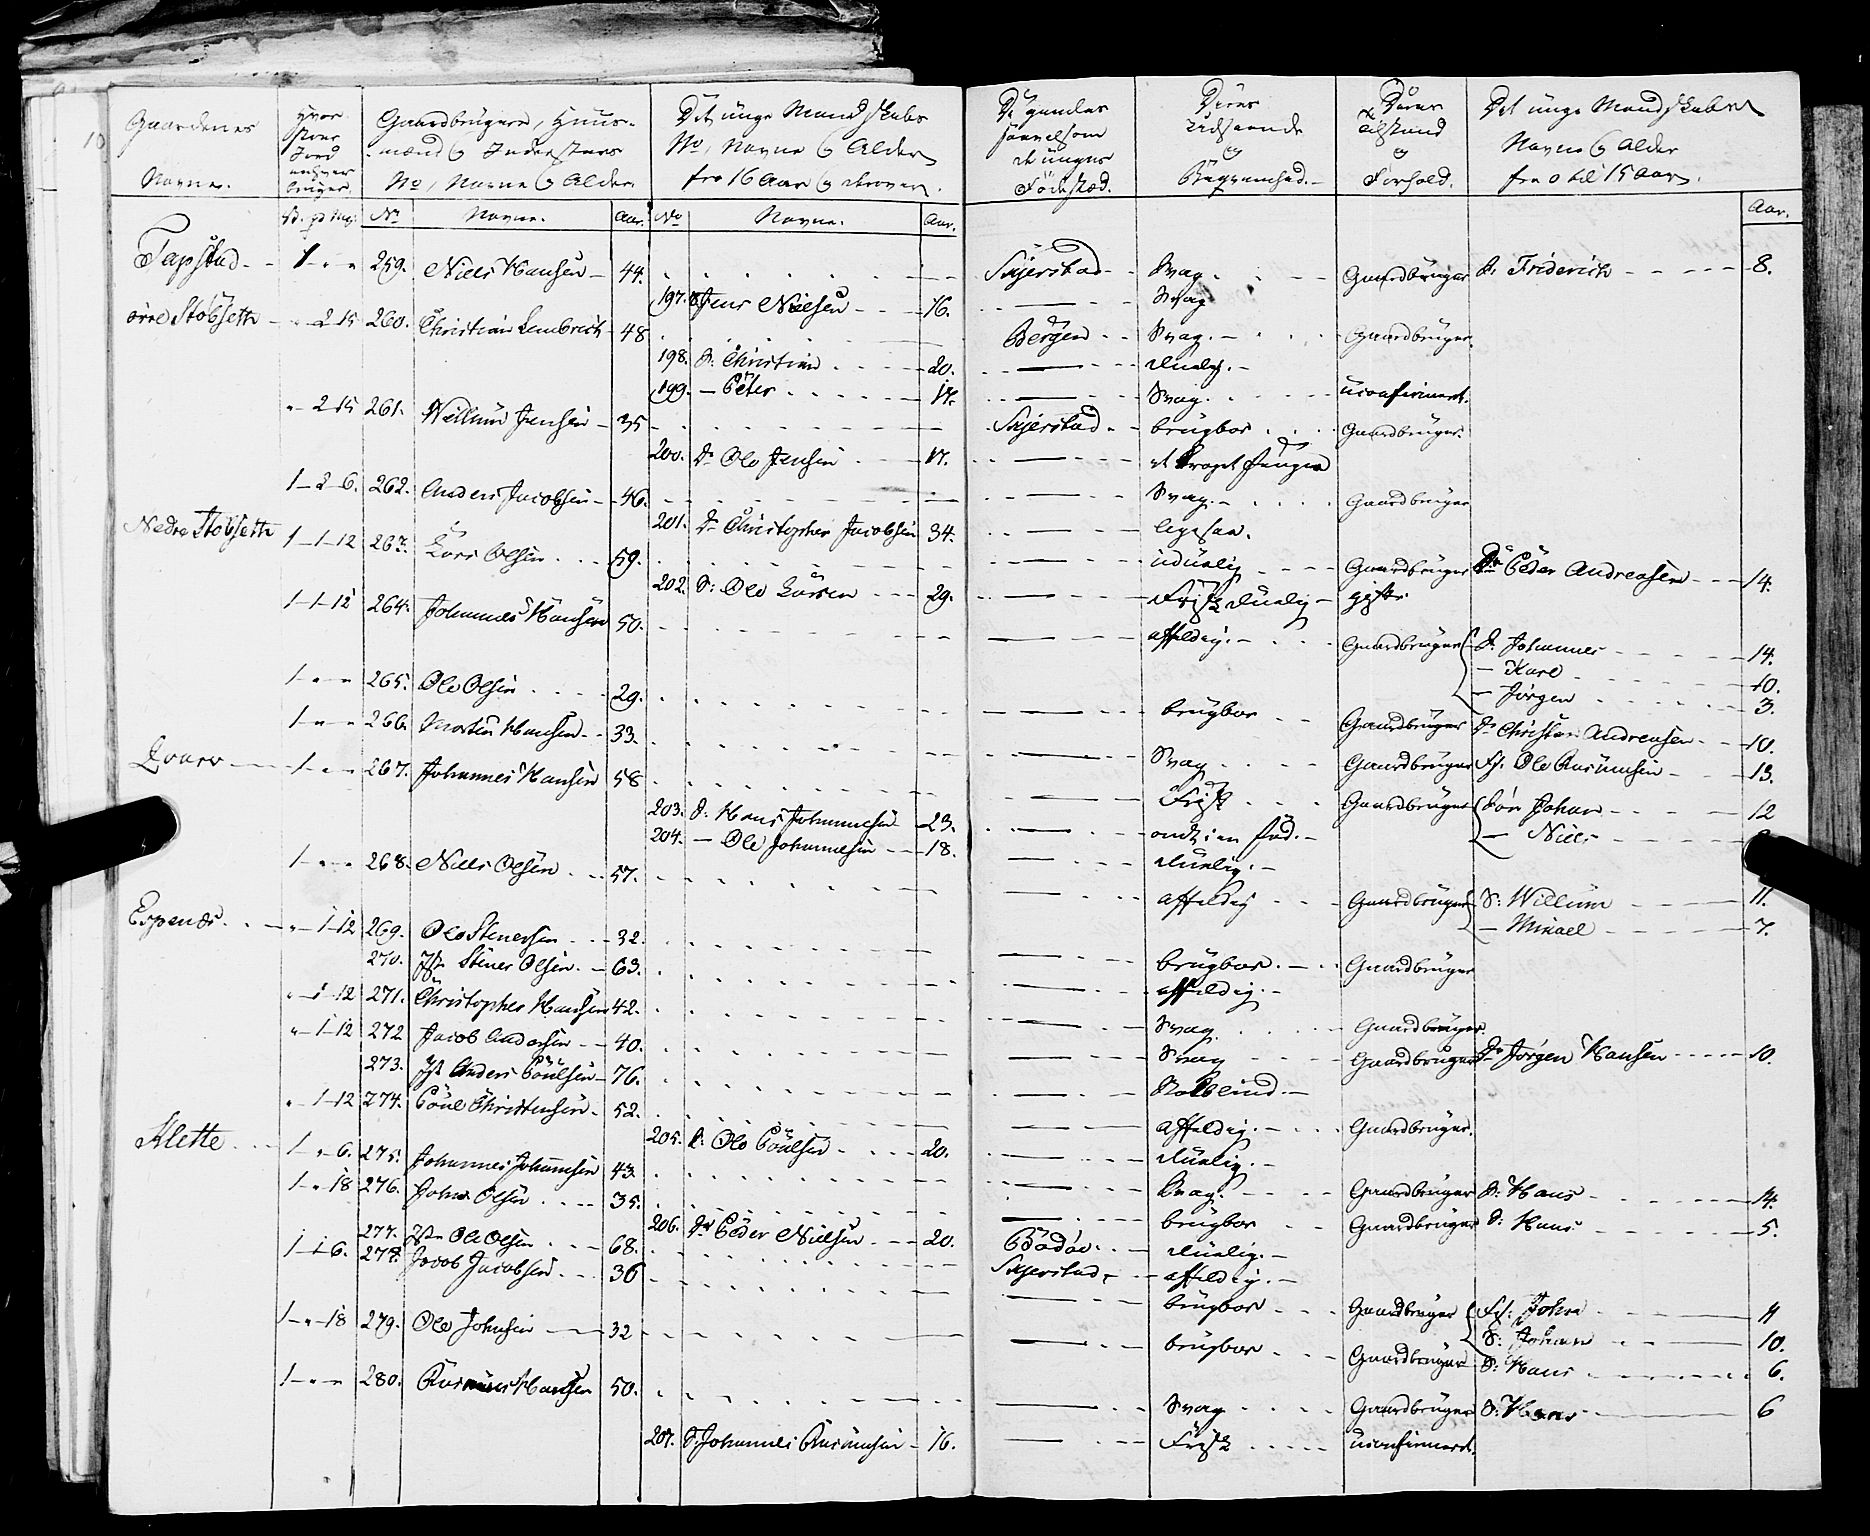 Gaardenes Navne.
Hvor stor Jord enhver bruger.
Gaardbrugere, Huus-mænd og Inderster No, Navne og Alder.
Det unge Mandskabs No, Navne og Alder fra 16 Aar og derover.
De gamles saavelsom de unges Fødested.
Deres Udseende og Bequemhed.
Deres Tilstand og Forhold.
Det unge Mandskabs Navne og Alder fra 0 til 15 Aar.
No Navne. Aar. No Navne. Aar. Aar.
Tapstad 1 " " 259. Niels Hansen 44. Skjerstad Svag. Gaardbruger S. Friderich 8.
197. Jens Nielsen 16. Svag
øvre Stobsett " 2 15 260. Christian Lembrech 48 Bergen Svag. Gaardbruger.
198. S. Christian 20. duelig.
199. Peter 17. Svag. uconfirmert.
" 2 15 261. Willum Jensen 35 Skjerstad brugbar Gaardbruger.
200. Dr Ole Jensen 17.
1 2 6. 262. Anders Jacobsen 46. Svag. Gaardbruger
201. Dr Christopher Jacobsen 34. ligesaa.
Nedre Stobsett 1 1 12 263. Lars Olsen 59. uduelig Gaardbruger Peder Andreasen 14.
202. S: Ole Larsen 29. Frisk duelig gift.
1 1 12 264. Johannes Hansen 50. affeldig. Gaardbruger S. Johannes 14.
Karl 10.
Jørgen 3.
1 " " 265. Ole Olsen 29. brugbar Gaardbruger Dr Christian Andreasen 10.
1 " " 266. Morten Hansen 33. Svag Gaardbruger Ole Rasmusen 13.
1 " " 267. Johannes Hansen 58 Frisk Gaardbruger Johan 12
Niels
203. S. Hans Johannesen 23. ondt i en fod.
204. Ole Johannesen 18. duelig.
1 " " 268. Niels Olsen 57. affeldig Gaardbruger S: Willum 11.
Mikael 7.
Espenæs " 1 12 269. Ole Stenersen 32. brugbar. Gaardbruger
270. Stener Olsen. 63. affeldig.
" 1 12 271. Christopher Hansen 42. Svag Gaardbruger.
" 1 12 272 Jacob Andersen 40. Svag Gaardbruger Dr Jørgen Hansen 10.
273. Anders Poulsen 76. Stokblind
" 1 12 274. Poul Christensen 52. affeldig. Gaardbruger.
205. S. Ole Poulsen 20. duelig.
Klette 1 " 6. 275. Johannes Johannsen 43. Svag. Gaardbruger S. Hans 14.
1 " 18 276. John Olsen 35. brugbar Gaardbruger S. Hans 5.
206. Dr Peder Nielsen 20. Bodøe duelig.
277. Ole Olsen 68. Skjerstad affeldig.
1 1 6. 278. Jacob Jacobsen 36 brugbar Gaardbruger John
S: Johan 10.
1 " 18 279. Ole Johnsen 32 brugbar Gaardbruger S: Hans 6.
1 " " 280. Rasmus Hansen 50. Svag Gaardbruger S: Hans 6
207. S Johannes Rasmusen 16. Frisk uconfirmert.